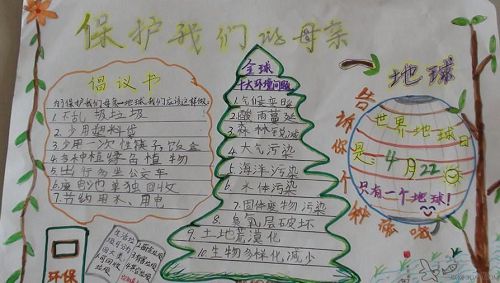 保护我们的母亲
地球
倡议书
为了保护我们母亲—地球,我们应该这样做:
1.不乱扔垃圾
2.少用塑料袋
3.少用一次性筷子饭盒
4.多种植绿色植物
5.出行多坐公交车
6.废电池单独回收
7.节约用水、用电
环保
全球
十大环境问题
1.气候变暖
2.酸雨蔓延
3.森林锐减
4.大气污染
5.海洋污染
6.水体污染
7.固体废物污染
8.臭氧层破坏
9.土地荒漠化
10.生物多样化减少
告诉你个
世界地球日
是4月22
只有一个地球!